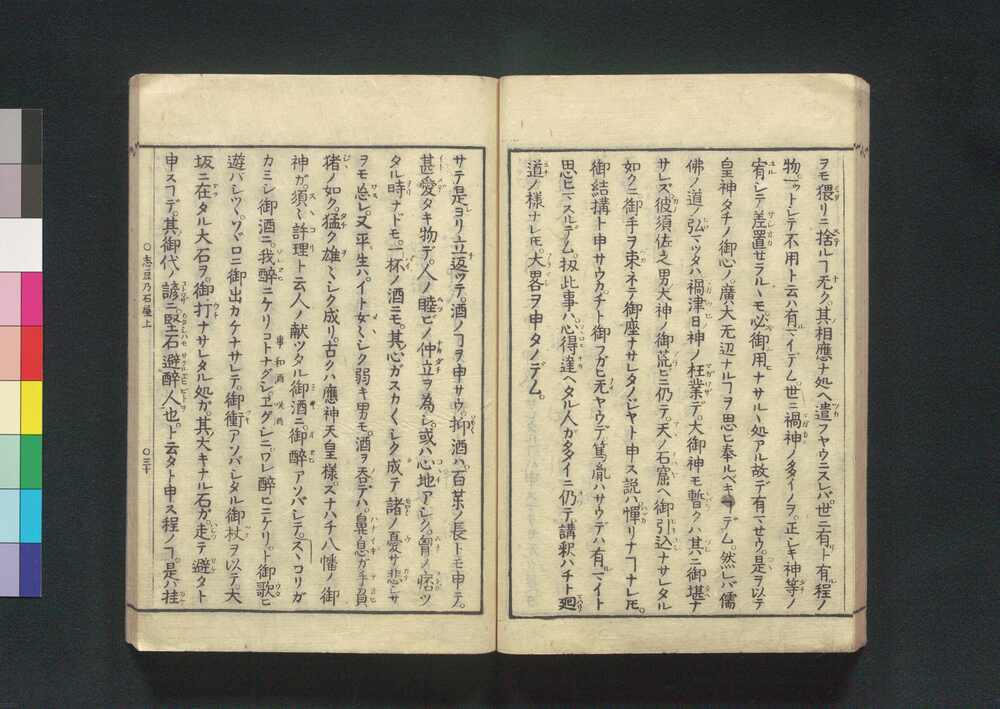 ヲモ猥リニ捨ルヿ无ク。其相應ナ処ヘ遣フヤウニスレバ。世ニ有ト有程ノ
物一ットシテ不用ト云ハ有マイデム。世ニ禍神ノ多イノヲ。正シキ神等ノ
宥シテ差置セラルヽモ。必御用ナサルヽ処アル故デ有マせウ。是ヲ以テ
皇神タチノ御心ノ。廣大无辺ナルヿヲ思ヒ奉ルベキデム。然レバ儒
佛ノ道ノ弘マッタハ。禍津日神ノ枉業デ。大御神モ暫クハ其ニ御堪ナ
サレズ。彼須佐之男大神ノ御荒ビニ仍テ。天ノ石窟ヘ御引込ナサレタル
如クニ御手ヲ束ネテ御座ナサレタノジヤト申ス説ハ憚リナヿナレ𪜈。
御結構ト申サウカ。チト御フガヒ无ヤウデ。篤胤ハサウデハ有マイト
思ヒマスルデム。扨此事ハ。心得違ヘタル人ガ多イニ仍テ。講釈ハチト廻
道ノ様ナレ𪜈。大畧ヲ申タノデム。
サテ是ヨリ立返ッテ。酒ノヿヲ申サウ。抑酒ハ。百薬ノ長トモ申テ。
甚愛タキ物デ。人ノ睦ビノ仲立ヲ為シ。或ハ心地アシク。胷ノ痞ツ
タル時ナドモ。一杯ノ酒ニモ。其心ガスカ〳〵シク成テ諸ノ憂サ悲シサ
ヲモ忘レ。又平生ハ。イト女〻シク弱キ男モ。酒ヲ呑デハ。鼻息ガ手負
猪ノ如ク。猛ク雄〻シク成リ。古クハ應神天皇様。スナハチ八幡ノ御
神ガ。須〻許理ト云人ノ献ツタル御酒ニ。御醉アソバシテ。スヽコリガ
カミシ御酒ニ。我醉ニケリコトナグシ。エグシニ。ワレ醉ヒニケリ。ト御歌ヒ
事和酒 咲酒
遊バシツヽ。ソヾロニ御出カケナサレテ。御衝アソバシタル御杖ヲ以テ。大
坂ニ在タル大石ヲ。御打ナサレタル処ガ。其大キナル石ガ走テ避タト
申スヿデ。其御代ノ諺ニ。堅石避醉人也。ト云タト申ス程ノヿ。是ハ挂
○志豆乃石屋上
○三十